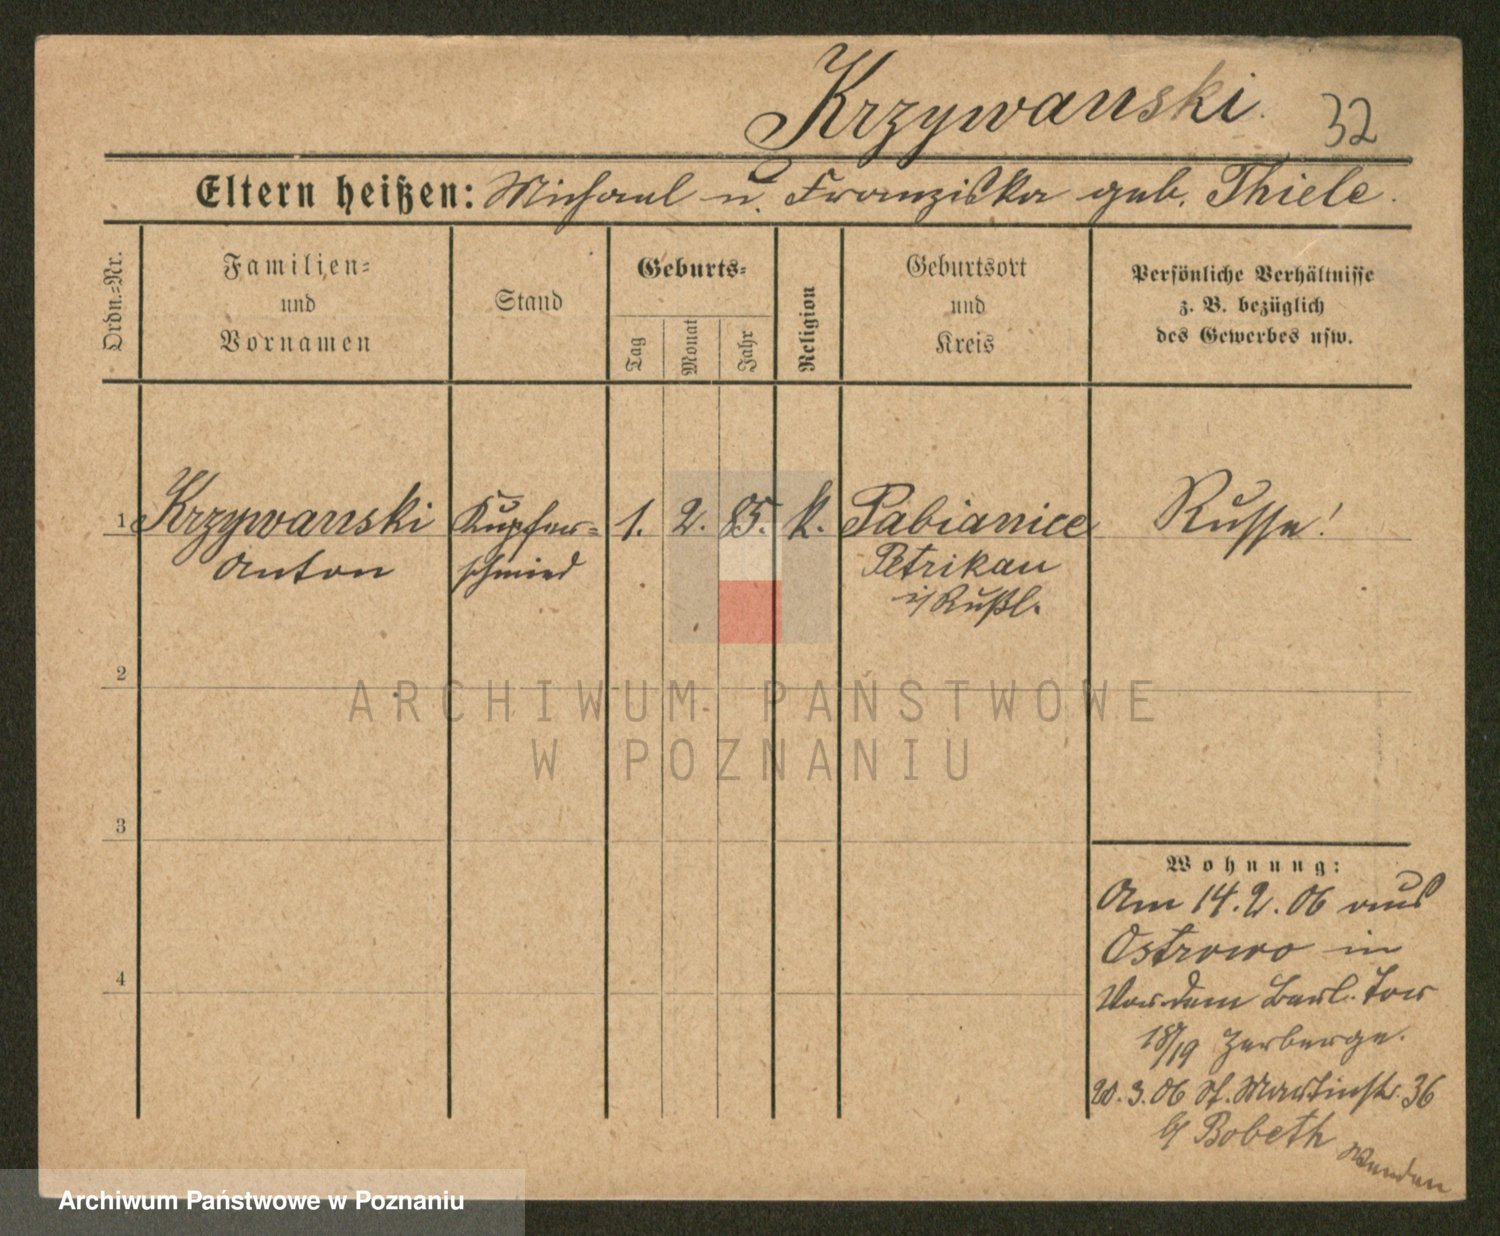 Krzywanski. 32
Eltern heißen: Michael u. Franziska geb. Thiele.
Ordn.-Nr.
Familien-
und
Vornamen
Stand
Geburts-
Tag
Monat
Jahr
Religion
Geburtsort
und
Kreis
Persönliche Verhältnisse
z. B. bezüglich
des Gewerbes usw.
1 Krzywanski Kupfer- 1. 2. 85. k. Pabianice Russe!
Anton schmied Petrikau
i/ Rußl.
2
ARCHIWUM PAŃSTWOWE
W POZNANIU
3
Wohnung:
Am 14.2.06 aus
Ostrowo in
4
Vor dem Berl. Tor
18/19 Herberge.
20.3.06 St. Martinstr. 36
b/ Bobeth
Wenden
Archiwum Państwowe w Poznaniu